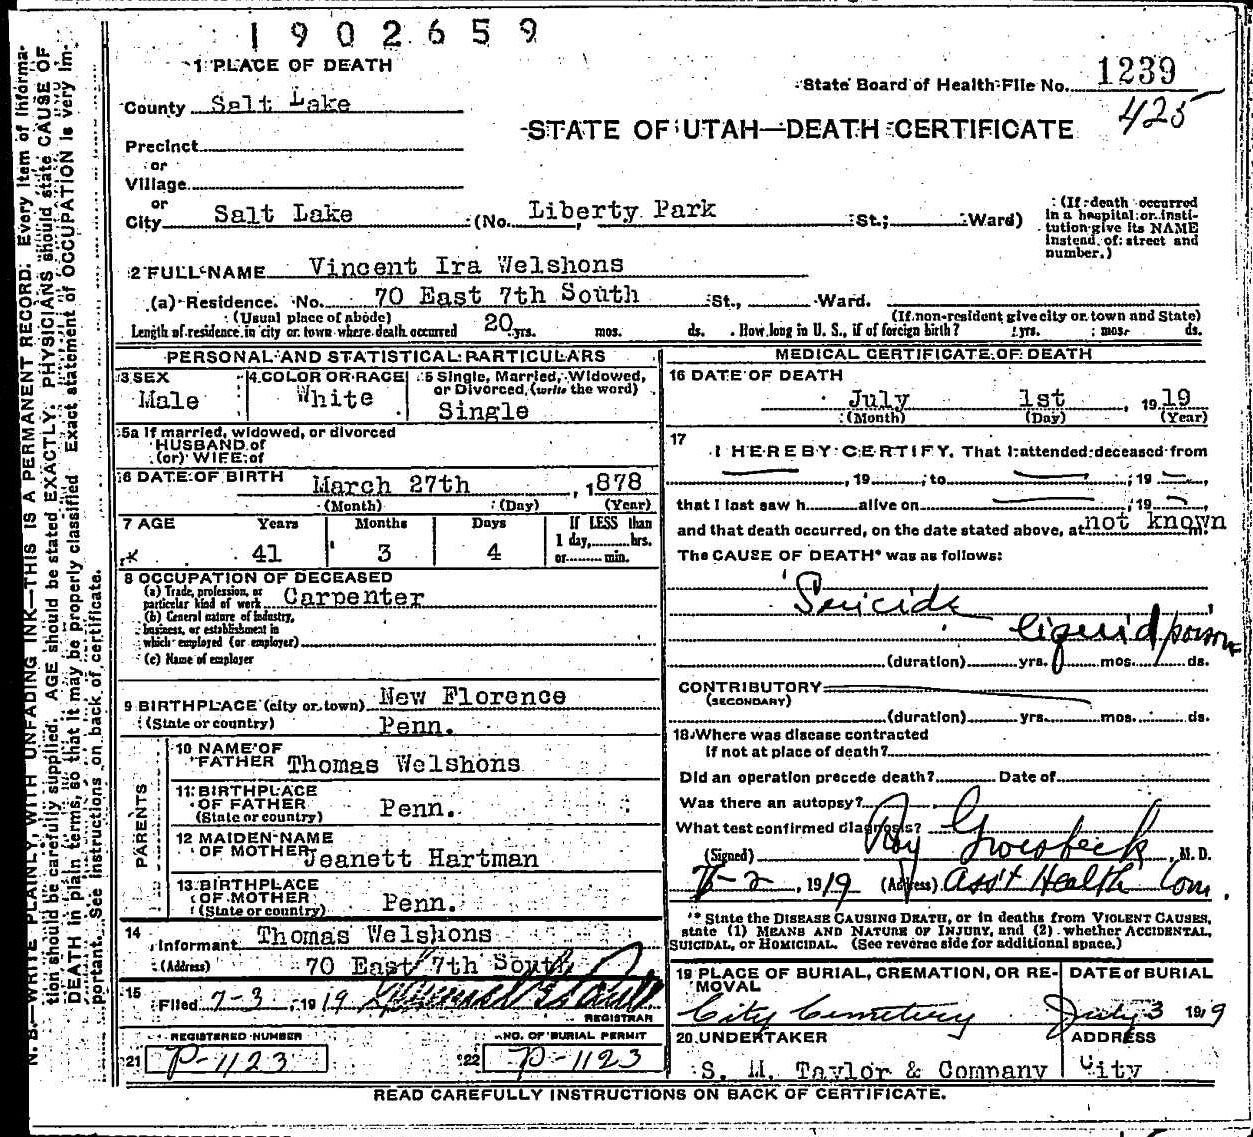 1902659
1 PLACE OF DEATH
State Board of Health File No. 1239
425
County Salt Lake
STATE OF UTAH—DEATH CERTIFICATE
Precinct
or
Village
or
City Salt Lake (No. Liberty Park St.; Ward)
(If death occurred in a hospital or institution give its NAME instead of street and number.)
2 FULL NAME Vincent Ira Welshons
(a) Residence. No. 70 East 7th South St., Ward.
(Usual place of abode) (If non-resident give city or town and State)
Length of residence in city or town where death occurred 20 yrs. mos. ds. How long in U. S., if of foreign birth? yrs. mos. ds.
PERSONAL AND STATISTICAL PARTICULARS
3 SEX
Male
4 COLOR OR RACE
White
5 Single, Married, Widowed, or Divorced, (write the word)
Single
5a If married, widowed, or divorced
HUSBAND of
(or) WIFE of
6 DATE OF BIRTH March 27th, 1878
(Month) (Day) (Year)
7 AGE Years Months Days If LESS than
1 day, hrs.
41 3 4 or min.
8 OCCUPATION OF DECEASED
(a) Trade, profession, or
particular kind of work Carpenter
(b) General nature of industry,
business, or establishment in
which employed (or employer)
(c) Name of employer
9 BIRTHPLACE (city or town) New Florence
(State or country) Penn.
PARENTS
10 NAME OF
FATHER Thomas Welshons
11 BIRTHPLACE
OF FATHER Penn.
(State or country)
12 MAIDEN NAME
OF MOTHER Jeanett Hartman
13 BIRTHPLACE
OF MOTHER Penn.
(State or country)
14
Informant Thomas Welshons
(Address) 70 East 7th South
15
Filed 7-3, 1919
REGISTRAR
REGISTERED NUMBER
21 P-1123
NO. OF BURIAL PERMIT
22 P-1123
MEDICAL CERTIFICATE OF DEATH
16 DATE OF DEATH
July 1st, 1919
(Month) (Day) (Year)
17
I HEREBY CERTIFY, That I attended deceased from
, 19 ; to ; 19 ,
that I last saw h alive on , 19 ,
and that death occurred, on the date stated above, at not known m.
The CAUSE OF DEATH* was as follows:
Suicide
liquid poison
(duration) yrs. mos. ds.
CONTRIBUTORY
(SECONDARY)
(duration) yrs. mos. ds.
18 Where was disease contracted
if not at place of death?
Did an operation precede death? Date of
Was there an autopsy?
What test confirmed diagnosis?
(Signed) Roy Groesbeck, M. D.
7-2, 1919 (Address) Ass't Health Com.
* State the DISEASE CAUSING DEATH, or in deaths from VIOLENT CAUSES,
state (1) MEANS AND NATURE OF INJURY, and (2) whether ACCIDENTAL,
SUICIDAL, or HOMICIDAL. (See reverse side for additional space.)
19 PLACE OF BURIAL, CREMATION, OR REMOVAL
City Cemetery
DATE of BURIAL
July 3 1919
20 UNDERTAKER
S. M. Taylor & Company
ADDRESS
City
READ CAREFULLY INSTRUCTIONS ON BACK OF CERTIFICATE.
N. B.—WRITE PLAINLY, WITH UNFADING INK—THIS IS A PERMANENT RECORD. Every item of information should be carefully supplied. AGE should be stated EXACTLY. PHYSICIANS should state CAUSE OF DEATH in plain terms, so that it may be properly classified. Exact statement of OCCUPATION is very important. See instructions on back of certificate.